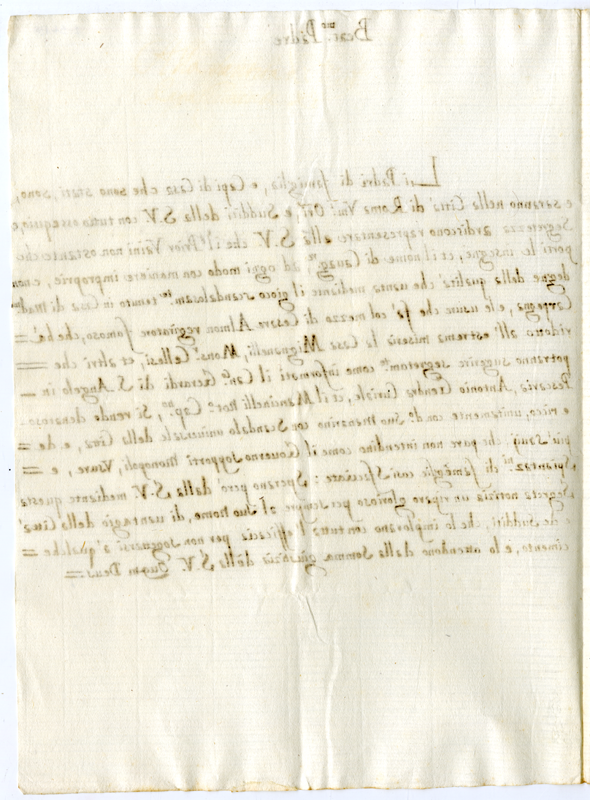 Beat.mo Padre
Li Padri di famiglia, e Capi di Casa che sono stati, sono,
e saranno nella Città di Roma Um.i e Sudditi della S.V. con tutto ossequio, e
Segretezza ardiscono rapresentare alla S.V. che il Prior Vaini non ostante che
porti le insegne, et il nome di ad ogni modo con maniere improprie, e non
degne della qualità che vanta mediante il gioco tenuto in Casa di
Carpegna, e le usure che fà col mezzo di Cesare famoso, che hà =
ridotto all'estrema miseria la Casa Mignanelli, Mons. Cellesi, et altri che =
potranno suggerire segretam.te come informati il Can.co di S. Angelo in =
Pescaria, Antonio Curiale, et il Mancinelli Cap. , Si rende denaroso
e ricco, unitamente con Scandalo universale della Città, e de =
più Savij che pure non intendino come il Governo sopporti Monopoli, Usure, e =
di famiglie così sfacciate; Sperano però dalla S.V. mediante questa
Segreta notizia un riparo glorioso per sempre al Suo nome, di vantaggio della Città
e de Sudditi, che lo implorano con tutta l'efficacia per non soggettarsi a' qualche =
cimento, e lo attendono dalla Somma giustizia della S.V. Quam Deus. =